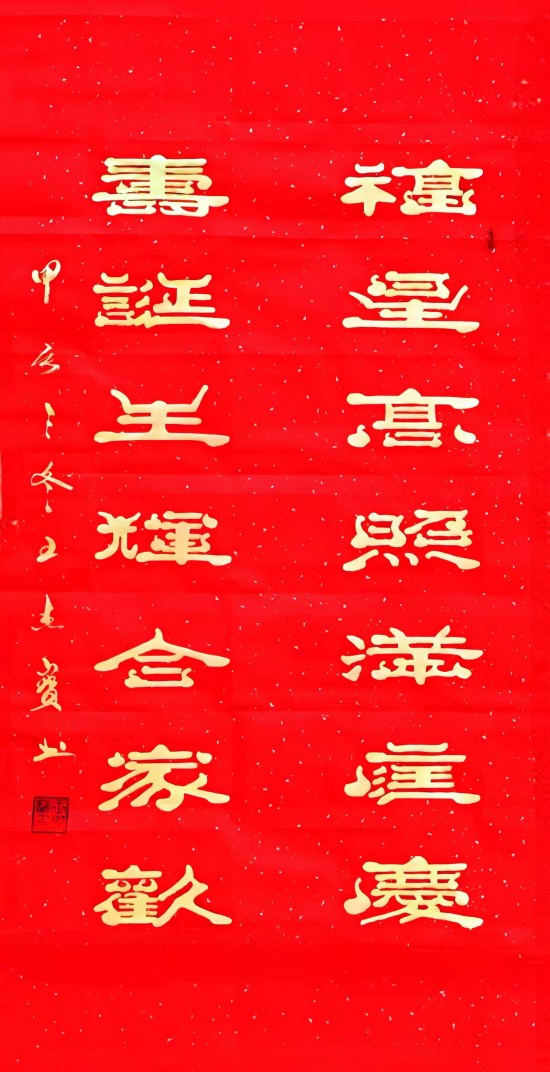 福星高照滿庭慶
壽誕生輝合家歡
甲辰之冬王志寶书